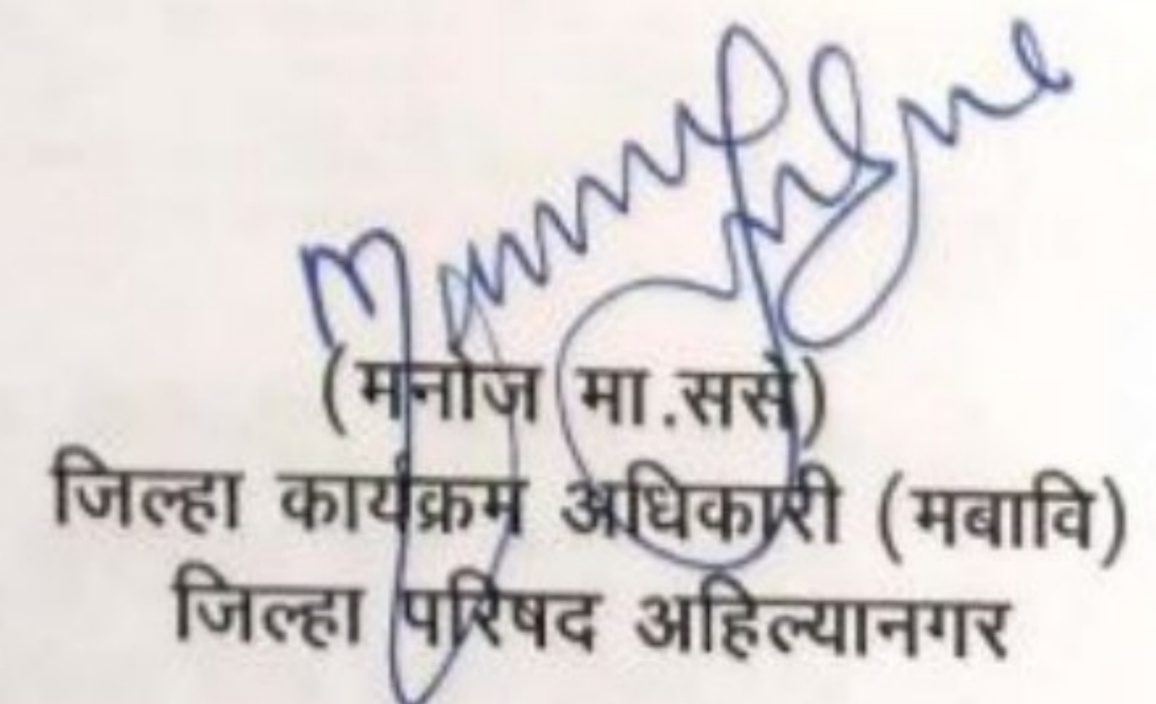 (मनोज मा.ससे)
जिल्हा कार्यक्रम अधिकारी (मबावि)
जिल्हा परिषद अहिल्यानगर